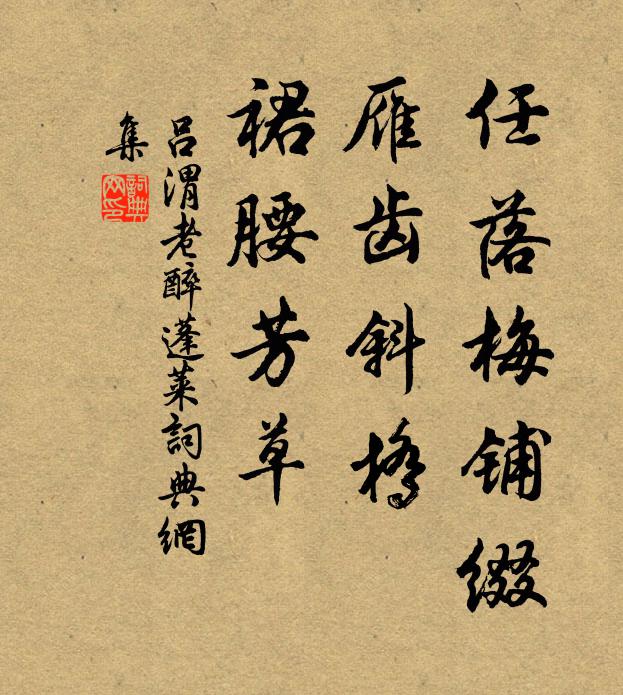 任落梅铺缀
雁齿斜桥
裙腰芳草
吕渭老醉蓬莱詞典網
集
詞典
网印